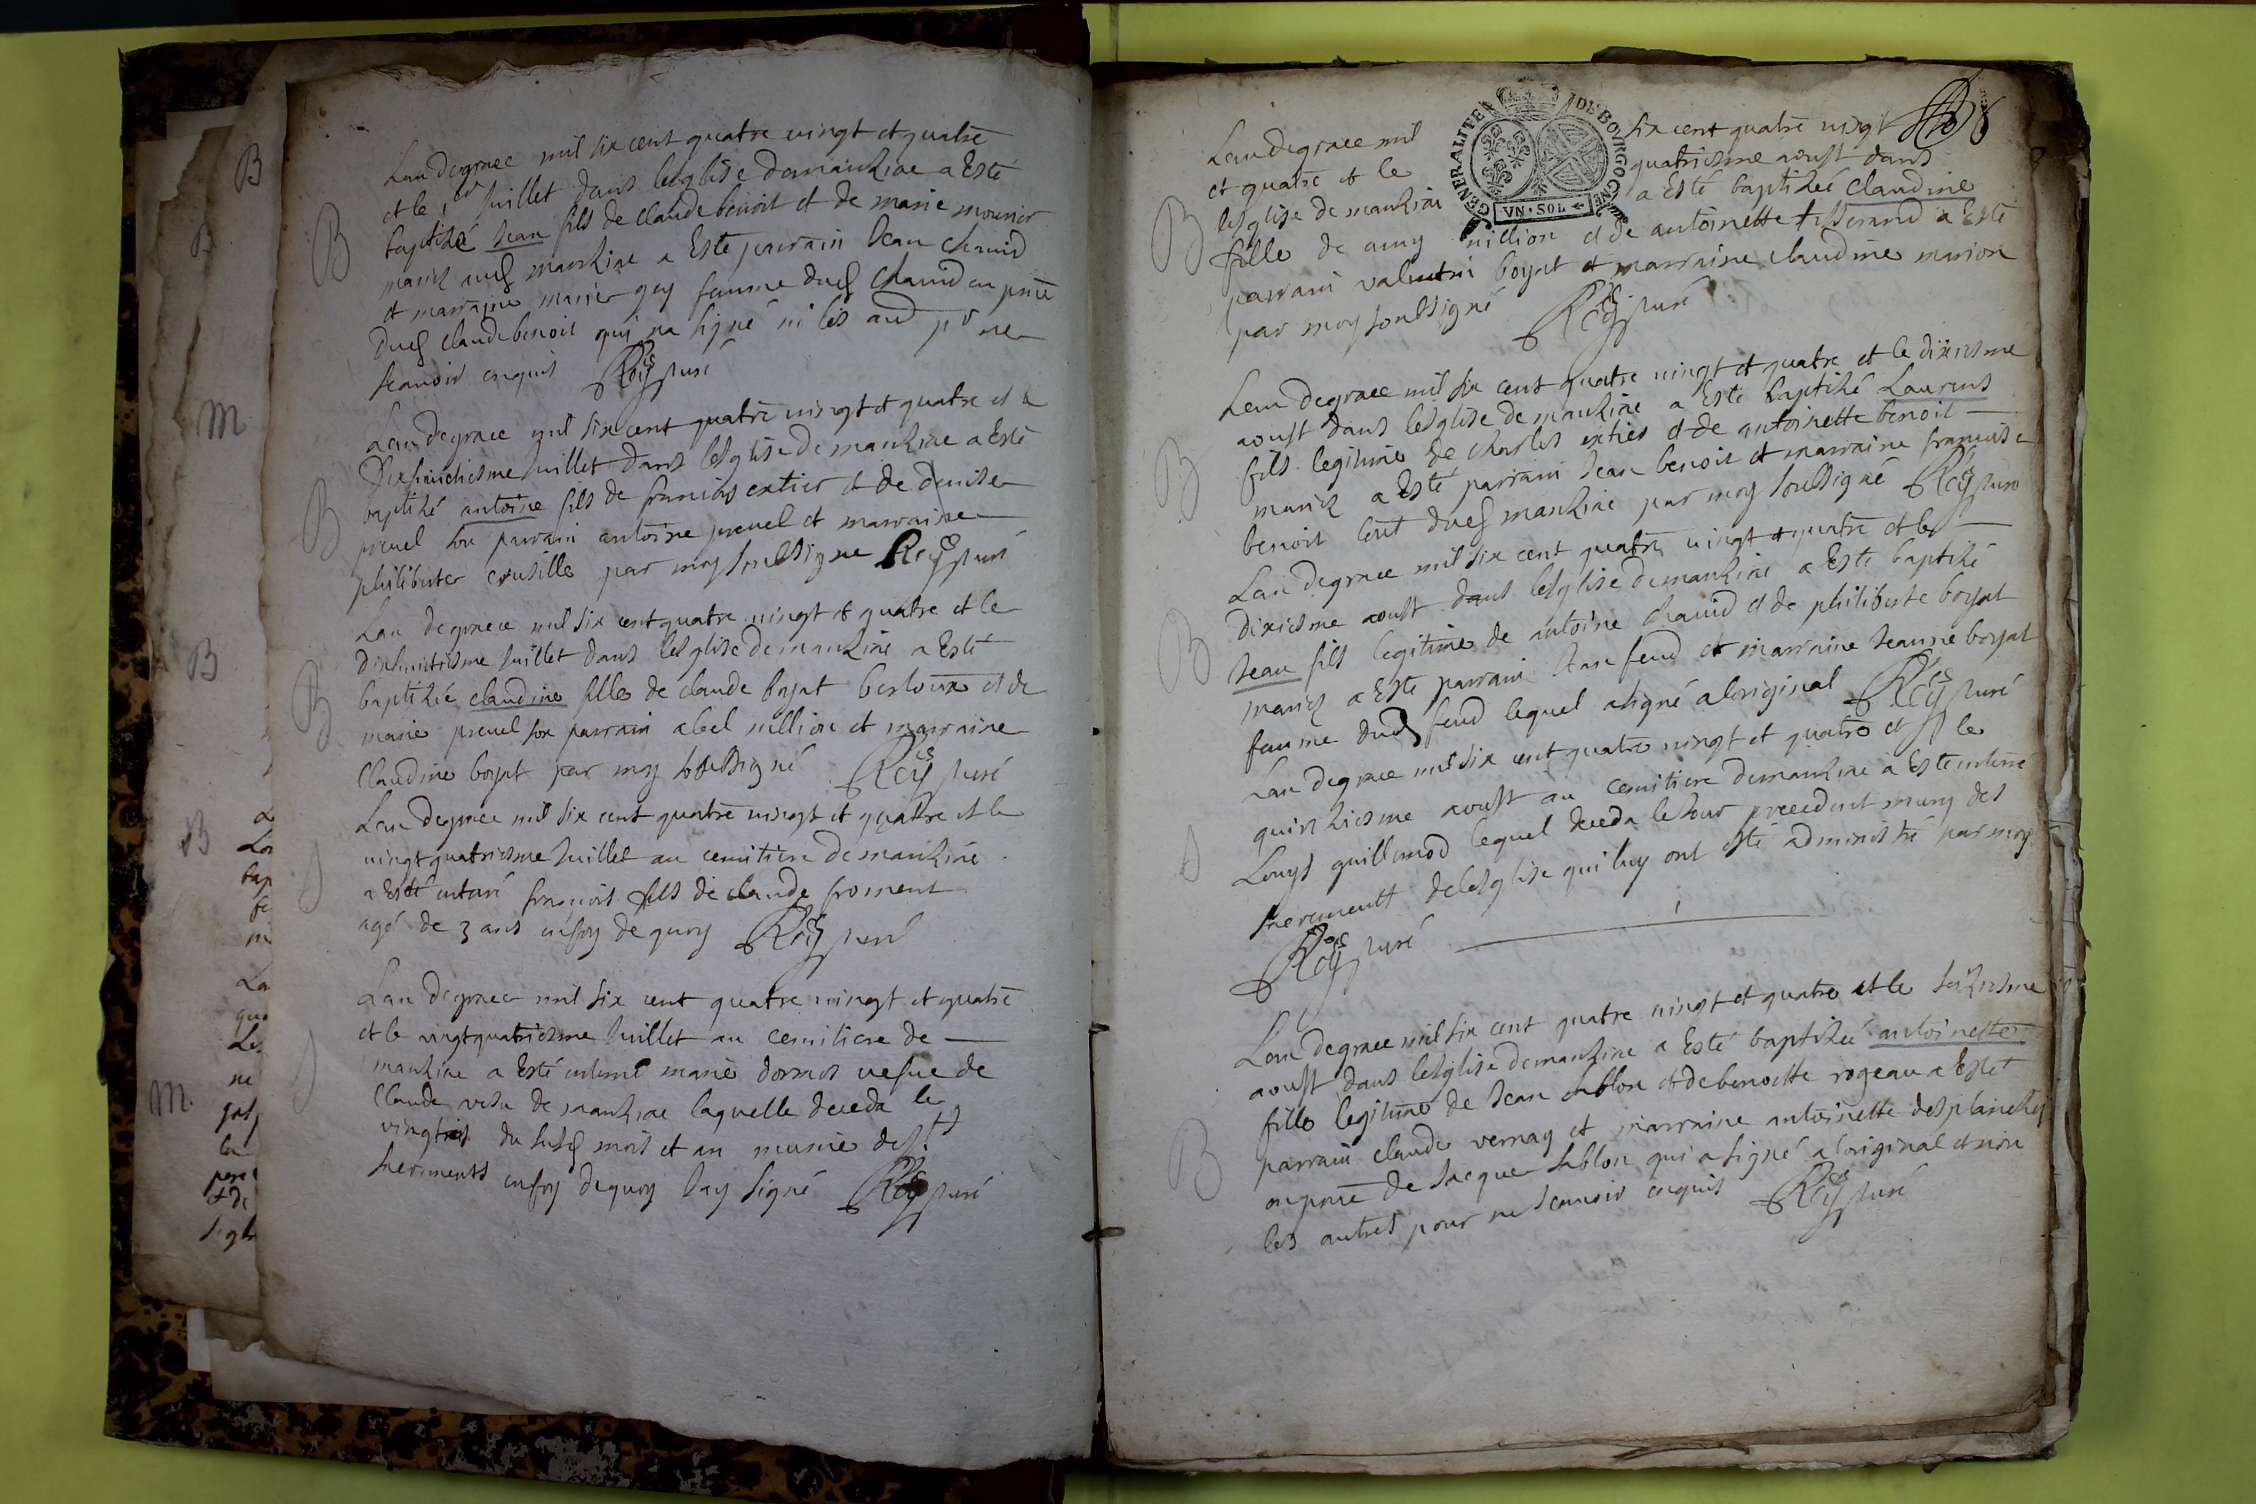 B
B
M
B
B
M.
Lan degrace mil six cent quatre vingt et quatre
et le 1er Juillet dans leglise demanziac a Esté
baptizé Jean fils de claude benoit et de marie mounier
mariez aud manziac a Esté parrain Jean chanid
et marraine marie guy femme dud chanid en pnce
dud claude benoit qui na signé ni les aud pr ne
scauoir enquis Roy curé
B
Lan degrace mil six cent quatre vingt et quatre et le
dixhuictiesme Juillet dans leglise de manziac a Esté
baptizé antoine fils de francois extier et de denise
preuel son parrain antoine preuel et marraine
philiberte crusille par moy soussigne Roy curé
B
Lan degrace mil six cent quatre vingt et quatre et le
dixhuictiesme Juillet dans leglise demanziac a Esté
baptizée claudine fille de claude boyat berloux et de
marie preuel son parrain abel nillion et marraine
Claudine boyat par moy soussigné Roy curé
B
Lan degrace mil six cent quatre vingt et quatre et le
vingtquatriesme Juillet au cemitiere de manziac
a Esté enterré francois fils de claude froment
agé de 3 ans en foy de quoy Roy curé
Lan degrace mil six cent quatre vingt et quatre
et le vingtquatriesme Juillet au cemitiere de
manziac a Esté enterré marie dormos vefue de
Claude de manziac laquelle deceda le
du susd mois et an munie des sts
sacrements en foy dequoy Jay signé Roy curé
GENERALITE DE BOVRGOGNE
VN·SOL
8
Lan degrace mil six cent quatre vingt
et quatre et le quatriesme aoust dans
leglise de manziac a Esté baptizée claudine
fille de amy nillion et de antoinette tisserand a Esté
parrain valentin boyat et marraine claudine marion
par moy soussigné Roy curé
B
Lan degrace mil six cent quatre vingt et quatre et le dixiesme
aoust dans leglise de manziac a Esté baptizé Laurens
fils legitime de charles extier et de antoinette benoit
mariez a Esté parrain Jean benoit et marraine francoise
benoit tout dud manziac par moy soussigné Roy curé
B
Lan degrace mil six cent quatre vingt et quatre et le
dixiesme aoust dans leglise demanziac a Esté baptizé
Jean fils legitime de antoine chanid et de philiberte boyat
mariez a Esté parrain Jean feud et marraine Jeanne boyat
femme dud feud lequel asigné aloriginal Roy curé
B
Lan degrace mil six cent quatre vingt et quatre et le
quinziesme aoust au cemitiere demanziac a Esté enterré
Louys guillemod lequel deceda le Jour precedent muny des
sacrements deleglise qui luy ont esté administré par moy
Roy curé
Lan degrace mil six cent quatre vingt et quatre et le seiziesme
aoust dans leglise demanziac a Esté baptizée antoinette
fille legitime de Jean sablon et de benoitte rogeau a Esté
parrain claude vernay et marraine antoinette desplanches
en pnce de Jacque sablon qui a signé a loriginal et non
les autres pour ne scauoir enquis Roy curé
B